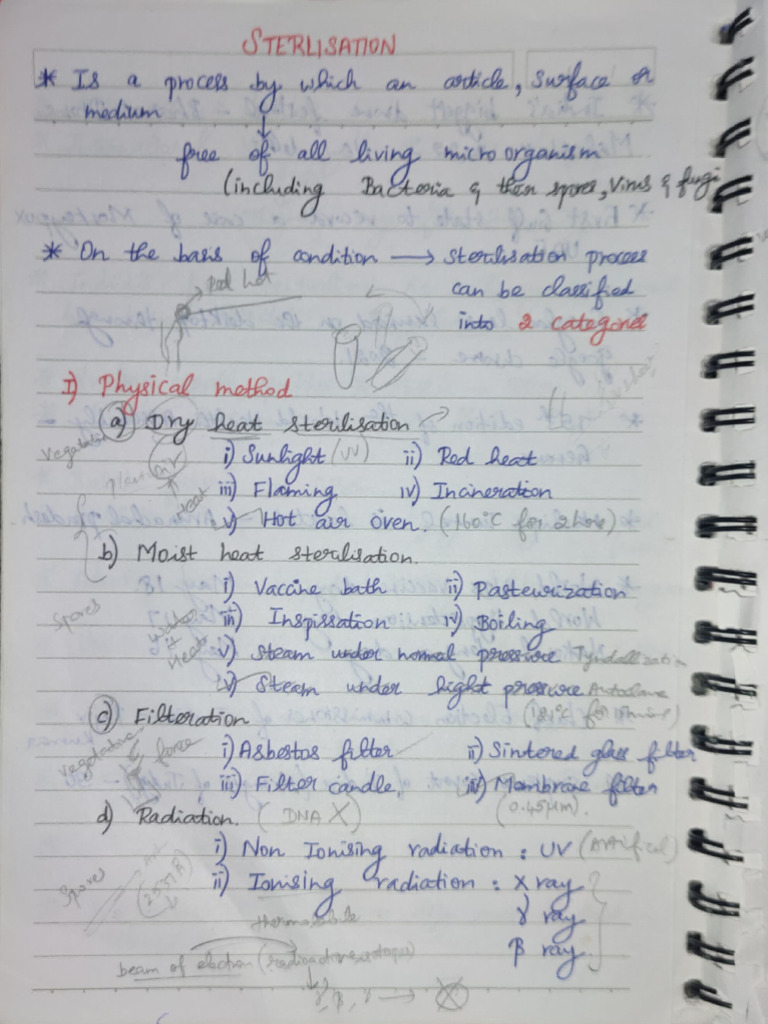 STERLISATION
* Is a process by which an article, surface or
medium
free of all living microorganism
(including Bacteria & their spores, Virus & fungi
* On the basis of condition → sterilisation process
Red hot
can be classified
into 2 categories
I) Physical method
a) Dry heat sterilisation
i) Sunlight (UV) ii) Red heat
iii) Flaming iv) Incineration
Heat
v) Hot air oven. (160°C for 2 hrs)
b) Moist heat sterilisation.
i) Vaccine bath ii) Pasteurization
Spores
iii) Inspissation iv) Boiling
Heat
v) Steam under normal pressure Tyndallization
v) Steam under hight pressure Autoclave
(121°C for 15 mins)
c) Filteration
vegetative force
i) Asbestos filter ii) Sintered glass filter
iii) Filter candle iv) Membrane filter
(0.45µm)
d) Radiation. (DNA X)
i) Non Ionising radiation : UV (Artifical)
Spores
ii) Ionising radiation : X ray
thermolabile
γ ray
β ray
beam of electron (radioactive isotopes)